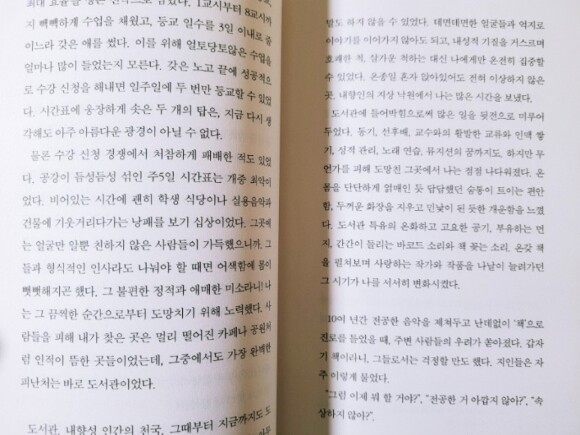 최대 효율을
1교시부터 8교시까
지 빽빽하게 수업을 채웠고, 등교 일수를 3일 이내로 줄
이느라 갖은 애를 썼다. 이를 위해 얼토당토않은 수업을
얼마나 많이 들었는지 모른다. 갖은 노고 끝에 성공적으
로 수강 신청을 해내면 일주일에 두 번만 등교할 수 있었
다. 시간표에 웅장하게 솟은 두 개의 탑은, 지금 다시 생
각해도 아주 아름다운 광경이 아닐 수 없다.
물론 수강 신청 경쟁에서 처참하게 패배한 적도 있었
다. 공강이 듬성듬성 섞인 주5일 시간표는 개중 최악이
었다. 비어있는 시간에 괜히 학생 식당이나 실용음악과
건물에 기웃거리다가는 낭패를 보기 십상이었다. 그곳에
는 얼굴만 알뿐 친하지 않은 사람들이 가득했으니까. 그
들과 형식적인 인사라도 나눠야 할 때면 어색함에 몸이
뻣뻣해지곤 했다. 그 불편한 정적과 애매한 미소라니! 나
는 그 끔찍한 순간으로부터 도망치기 위해 노력했다. 사
람들을 피해 내가 찾은 곳은 멀리 떨어진 카페나 공원처
럼 인적이 뜸한 곳들이었는데, 그중에서도 가장 완벽한
피난처는 바로 도서관이었다.
도서관, 내향성 인간의 천국, 그때부터 지금까지도 도
말도 하지 않을 수 있었다. 데면데면한 얼굴들과 억지로
이야기를 이어가지 않아도 되고, 내성적 기질을 거스르며
호쾌한 척, 살가운 척하는 대신 나에게만 온전히 집중할
수 있었다. 온종일 혼자 앉아있어도 전혀 이상하지 않은
곳, 내향인의 지상 낙원에서 나는 많은 시간을 보냈다.
도서관에 틀어박힘으로써 많은 일을 뒷전으로 미루어
두었다. 동기, 선후배, 교수와의 활발한 교류와 인맥 쌓
기, 성적 관리, 노래 연습, 뮤지션의 꿈까지도. 하지만 무
언가를 피해 도망친 그곳에서 나는 점점 나다워졌다. 온
몸을 단단하게 얽매인 듯 답답했던 숨통이 트이는 편안
함, 두꺼운 화장을 지우고 민낯이 된 듯한 개운함을 느꼈
다. 도서관 특유의 온화하고 고요한 공기, 부유하는 먼
지, 간간이 들리는 바코드 소리와 책 꽂는 소리. 온갖 책
을 펼쳐보며 사랑하는 작가와 작품을 나날이 늘려가던
그 시기가 나를 서서히 변화시켰다.
10여 년간 전공한 음악을 제쳐두고 난데없이 ‘책’으로
진로를 틀었을 때, 주변 사람들의 우려가 쏟아졌다. 갑자
기 책이라니, 그들로서는 걱정할 만도 했다. 지인들은 자
주 이렇게 물었다.
“그럼 이제 뭐 할 거야?”, “전공한 거 아깝지 않아?”, “속
상하지 않아?”